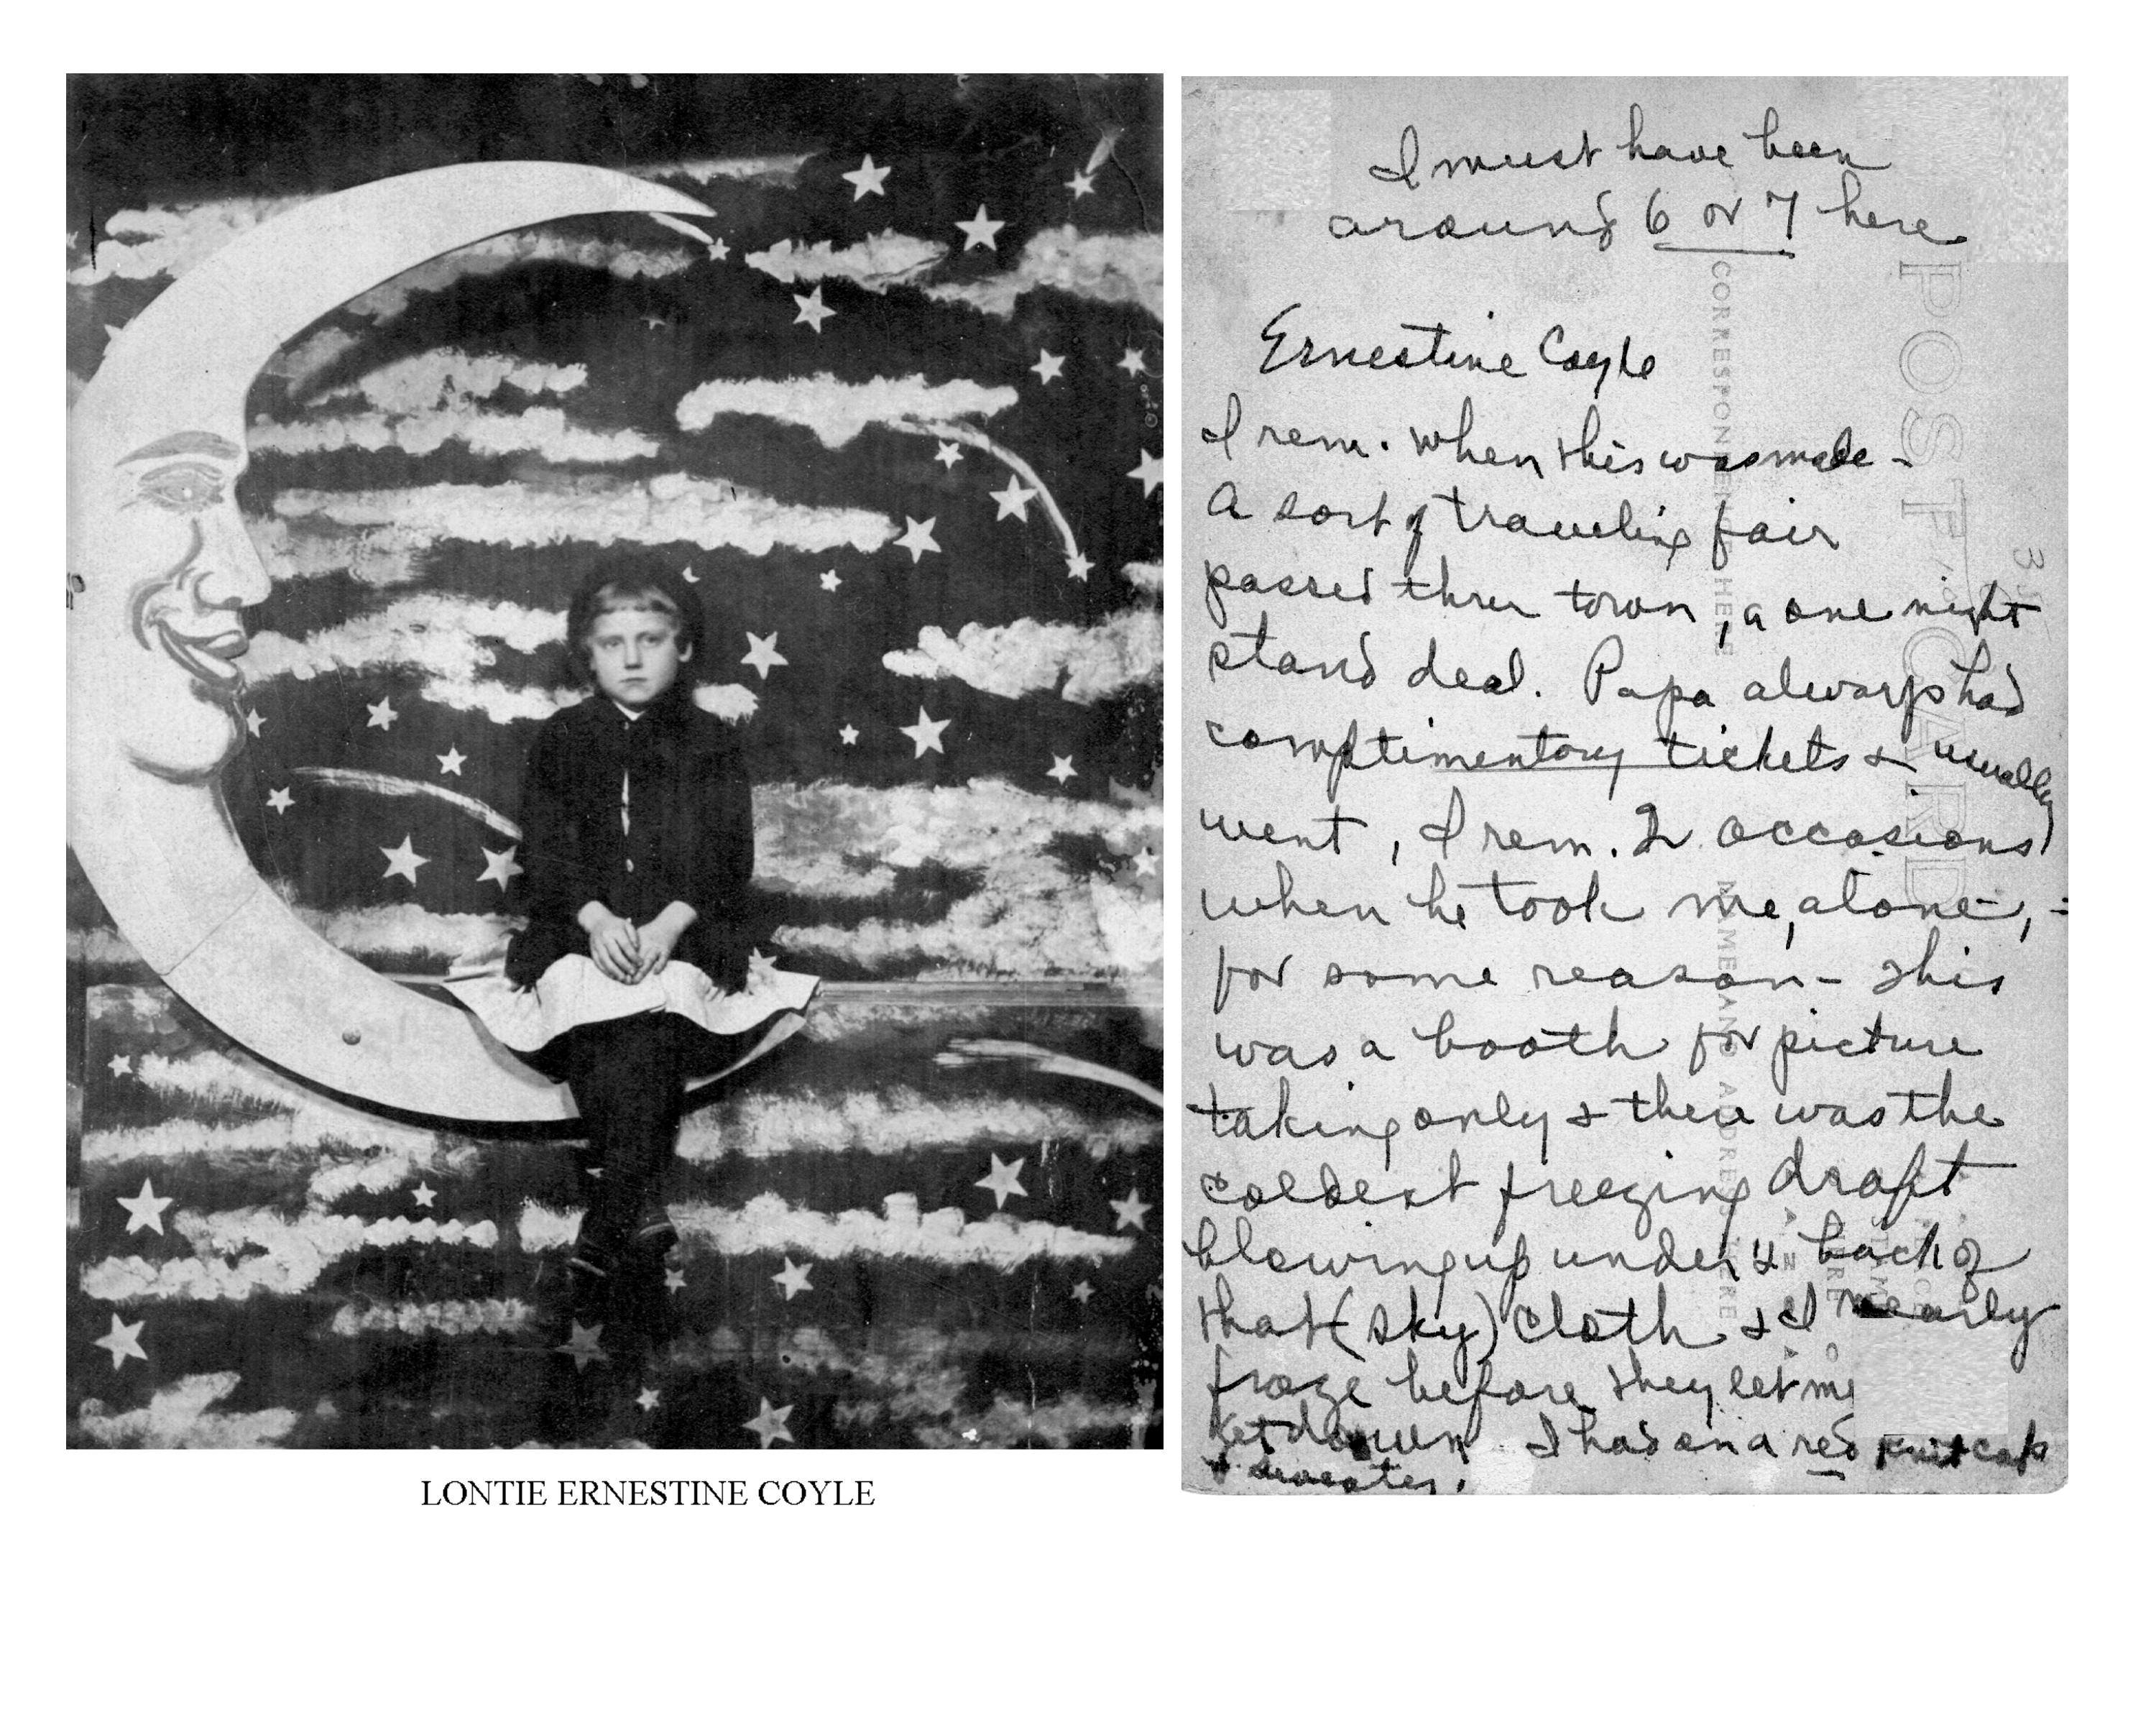 I must have been
around 6 or 7 here
Ernestine Coyle
I rem. when this was made -
A sort of traveling fair
passed thru town, a one night
stand deal. Papa always had
complimentory tickets & usually
went, I rem. 2 occasions
when he took me, alone, -
for some reason - This
was a booth for picture
taking only & there was the
coldest freezing draft
blowing up under & back of
that (sky) cloth & I nearly
froze before they let me
get down. I had on a red knit cap
& sweater.
POST CARD
CORRESPONDENCE HERE
NAME AND ADDRESS HERE
LONTIE ERNESTINE COYLE